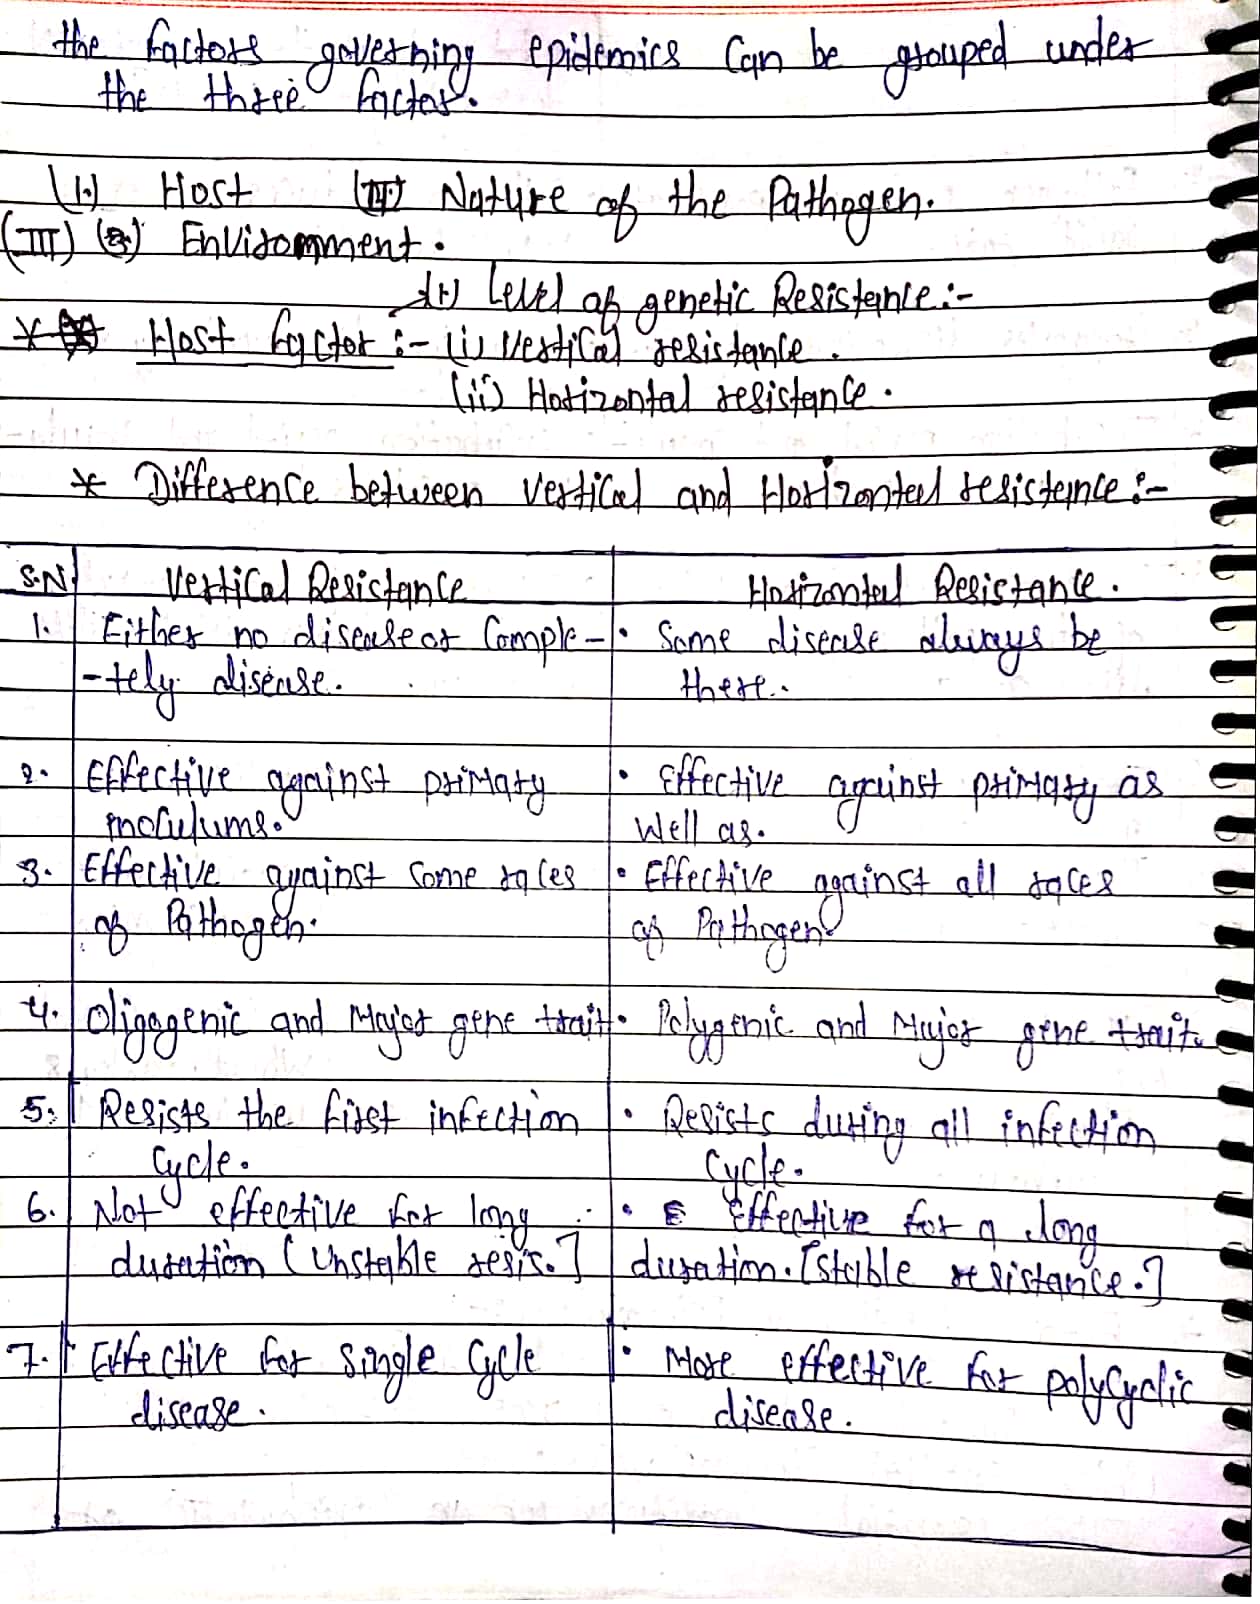 the factors governing epidemics Can be grouped under
the three factor.
(1.) Host (II) Nature of the Pathogen.
(III) Enviromment.
(1) Level of genetic Resistance :-
* Host factor :- (i) Vertical resistance.
(ii) Horizontal resistance.
* Difference between Vertical and Horizontal resistance :-
S.N Vertical Resistance Horizontal Resistance.
1. Either no disease or Comple- • Some disease always be
-tely disease. there..
2. Effective against primary • Effective against primary as
inoculums. Well as.
3. Effective against Some races • Effective against all races
of Pathogen. of Pathogen
4. Oligogenic and Major gene trait • Polygenic and Major gene trait.
5. Resists the first infection • Resists during all infection
Cycle. Cycle.
6. Not effective for long • Effective for a long
duration [Unstable resis.] duration. [Stable resistance.]
7. Effective for Single Cycle • More effective for polyCyclic
disease. disease.